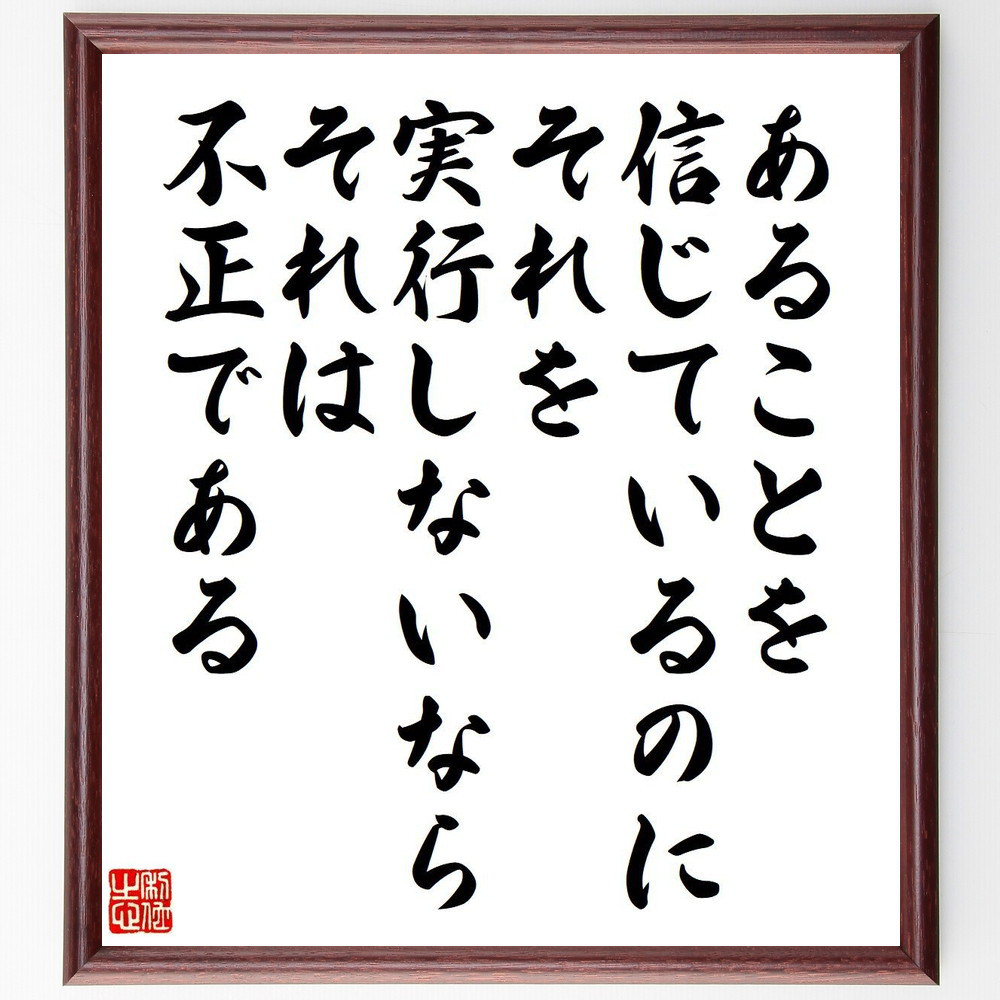 あることを
信じているのに
それを
実行しないなら
それは
不正である